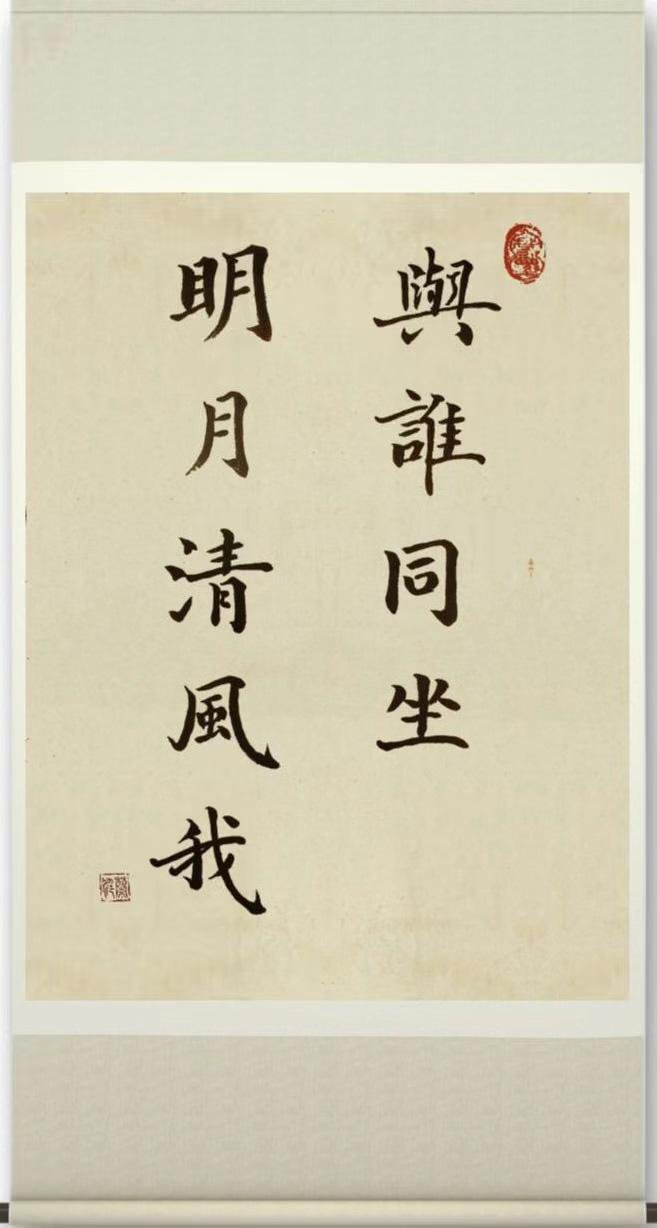 與誰同坐
明月清風我